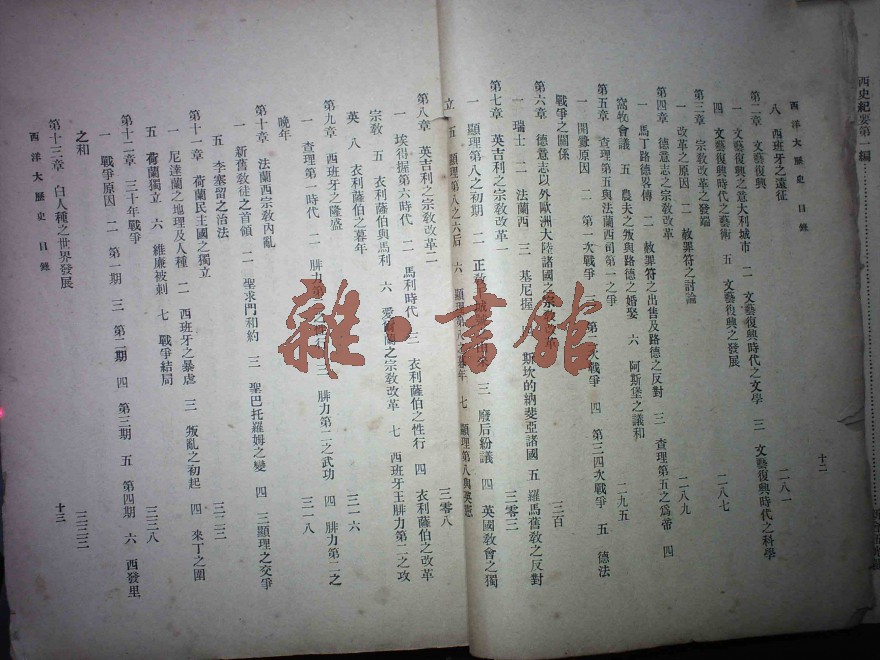 西史紀要第一編
西洋大歷史 目錄 十二
八 西班牙之遠征 二八一
第二章 文藝復興
一 文藝復興之意大利城市 二 文藝復興時代之文學 三 文藝復興時代之科學
四 文藝復興時代之藝術 五 文藝復興之發展 二八七
第三章 宗教改革之發端
一 改革之原因 二 赦罪符之討論 二八九
第四章 德意志之宗教改革
一 馬丁路德畧傳 二 赦罪符之出售及路德之反對 三 查理第五之爲帝 四
窩牧會議 五 農夫之叛與路德之婚娶 六 阿斯堡之議和 二九五
第五章 查理第五與法蘭西司第一之爭
一 開釁原因 二 第一次戰爭 三 第二次戰爭 四 第三四次戰爭 五 德法
戰爭之關係 三百
第六章 德意志以外歐洲大陸諸國之宗教改革
一 瑞士 二 法蘭西 三 基尼握 四 斯坎的納斐亞諸國 五 羅馬舊教之反對 三零三
第七章 英吉利之宗教改革
一 顯理第八之初期 二 正教 三 廢后紛議 四 英國教會之獨
立 五 顯理第八之六后 六 顯理第八之暮年 七 顯理第八與英憲 三零八
第八章 英吉利之宗教改革二
一 埃得握第六時代 二 馬利時代 三 衣利薩伯之性行 四 衣利薩伯之改革
宗教 五 衣利薩伯與馬利 六 愛爾蘭之宗教改革 七 西班牙王腓力第二之攻
英 八 衣利薩伯之暮年 三一六
第九章 西班牙之隆盛
一 查理第一時代 二 腓力第二之性行 三 腓力第二之武功 四 腓力第二之
晚年 三一八
第十章 法蘭西宗教內亂
一 新舊教徒之首領 二 聖求門和約 三 聖巴托羅姆之變 四 三顯理之交爭
五 李塞留之治法 三二三
第十一章 荷蘭民主國之獨立
一 尼達蘭之地理及人種 二 西班牙之暴虐 三 叛亂之初起 四 來丁之圍
五 荷蘭獨立 六 維廉被刺 七 戰爭結局 三二八
第十二章 三十年戰爭
一 戰爭原因 二 第一期 三 第二期 四 第三期 五 第四期 六 西發里
之和 三三三
第十三章 白人種之世界發展
西洋大歷史 目錄 十三
雜·書館